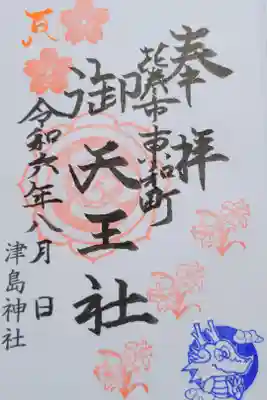 奉拝
市東和町
御天王社
令和六年八月 日
津島神社